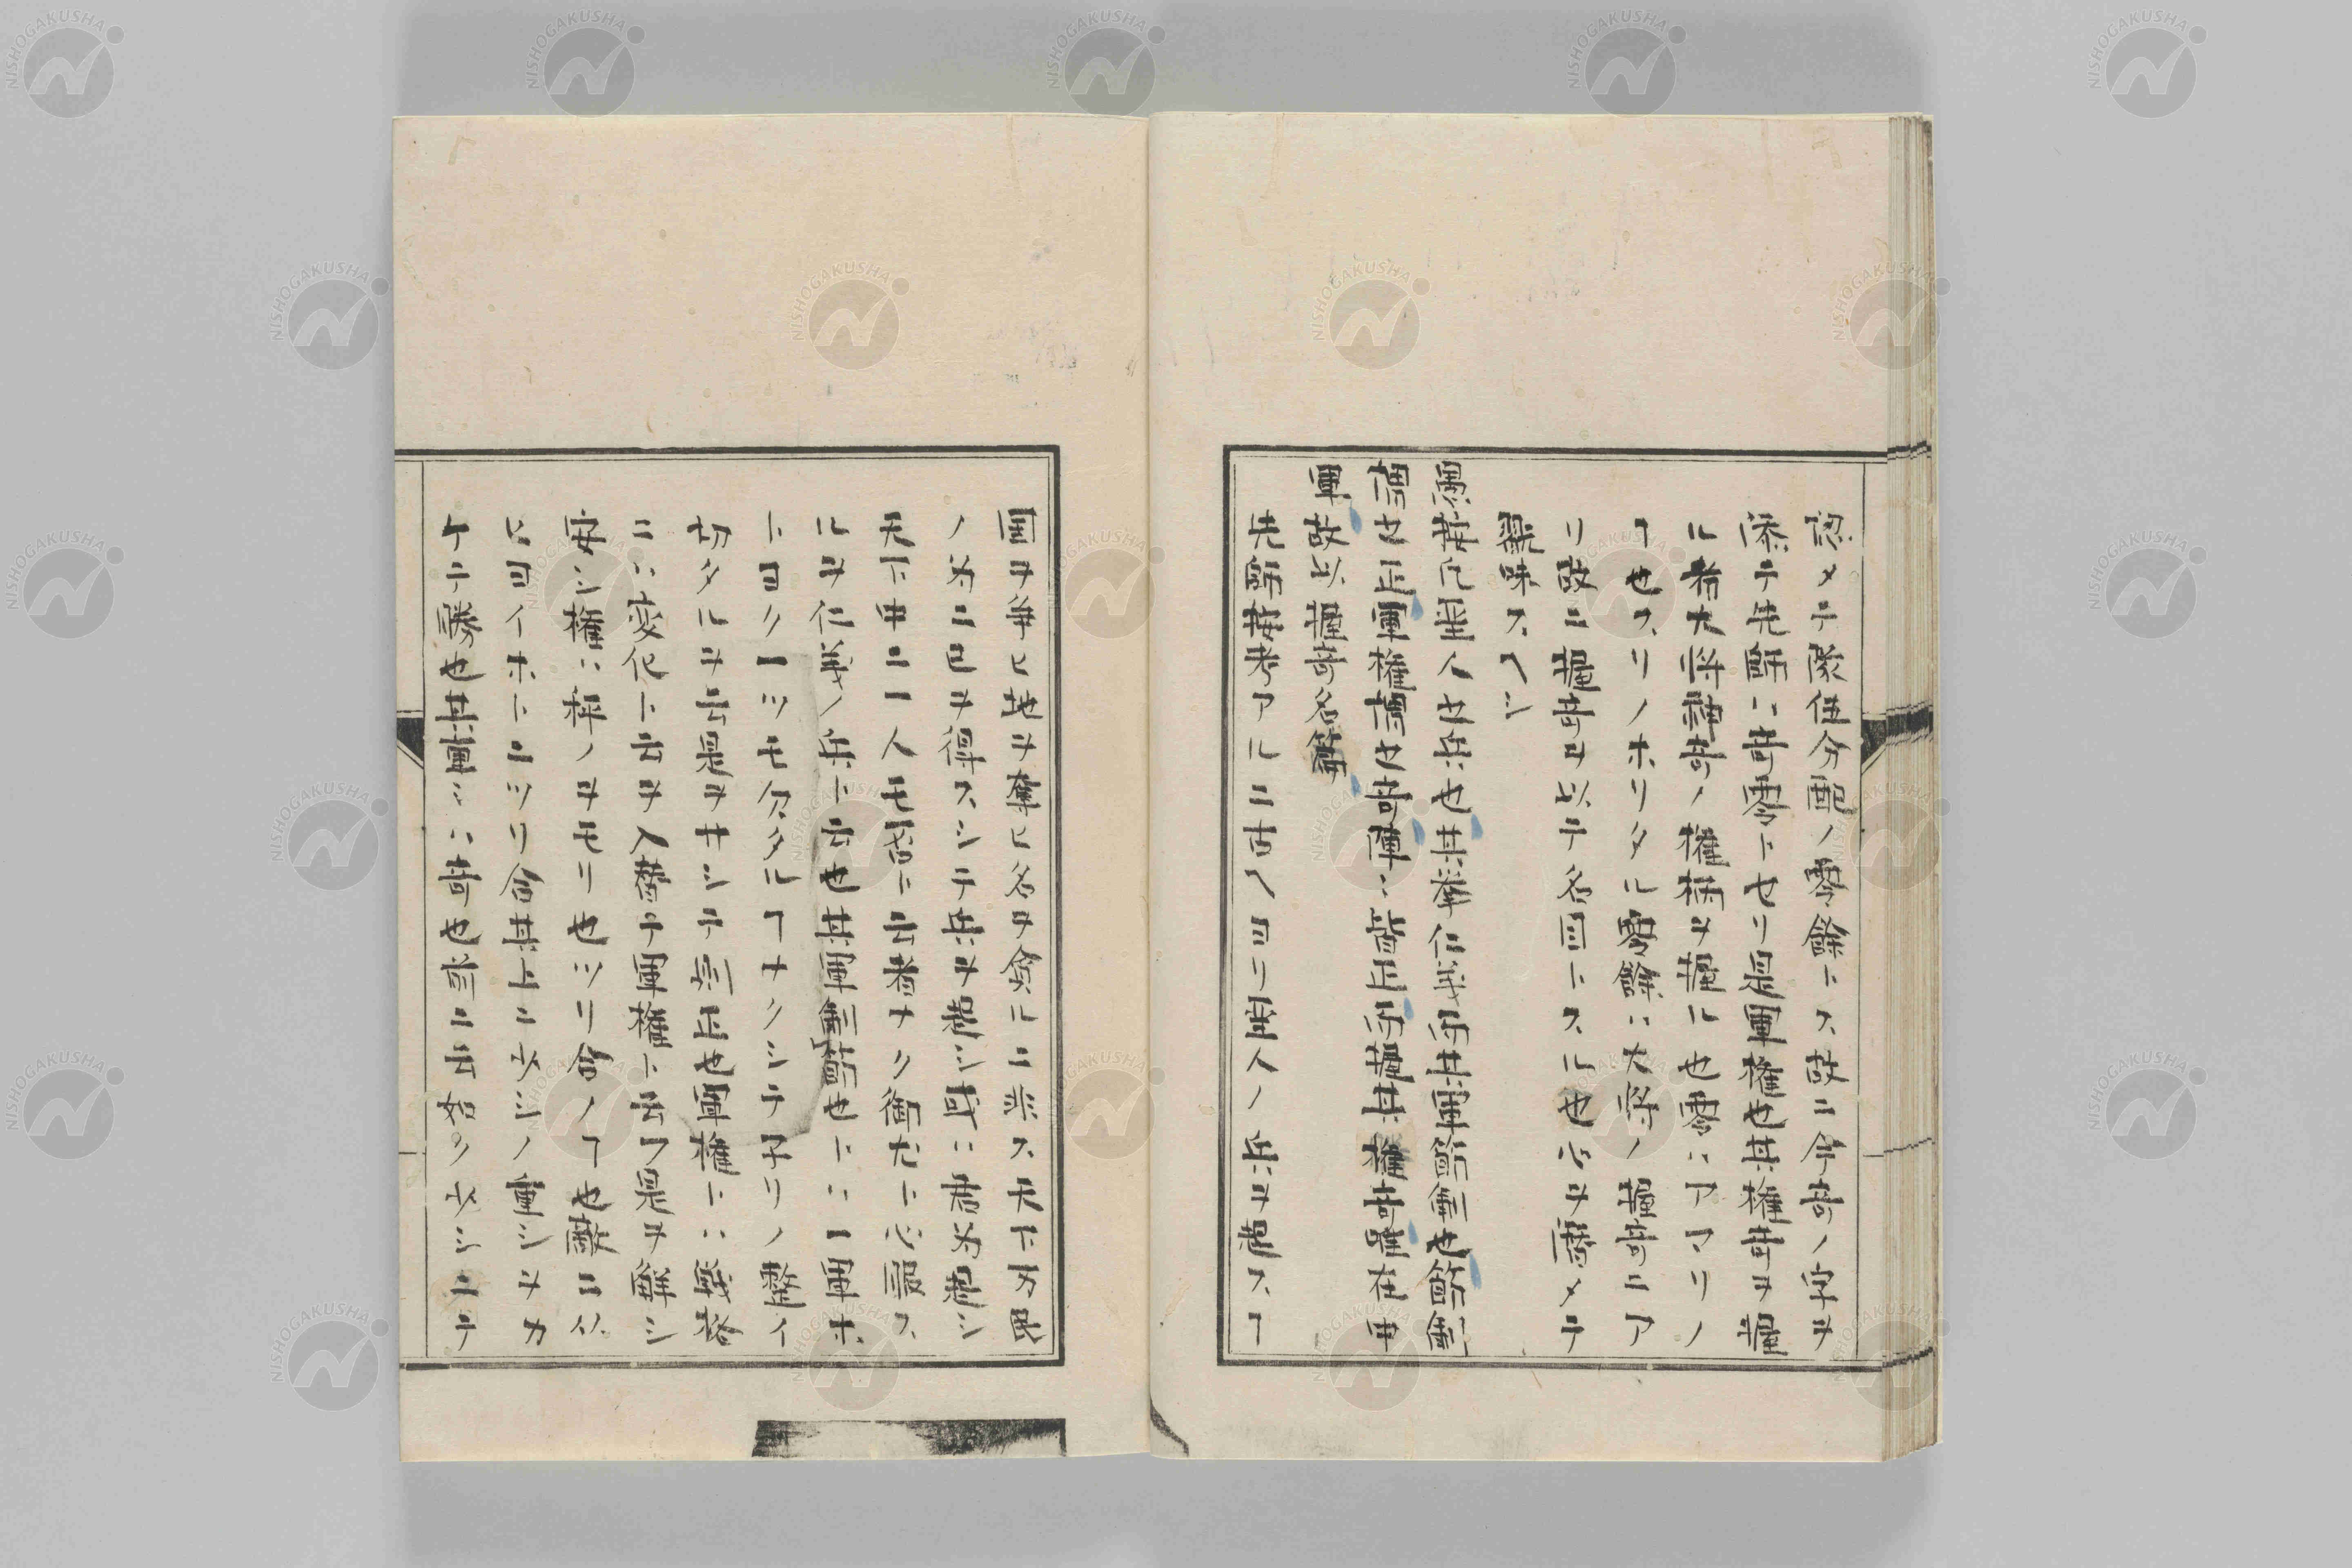 認メテ隊伍分配ノ零餘トス故ニ今奇ノ字ヲ
添テ先師ハ奇零トセリ是軍權也其權奇ヲ握
ル者大将務奇ノ權柄ヲ握ル也零ハアマリノ
ヿ也スリノホリタル零餘ハ大将ノ握奇ニア
リ故ニ握奇ヲ以テ名目トスル也心ヲ潛メテ
翫味スヘシ
愚按凡聖人世兵也其挙仁義所其軍節制也節制
謂也正軍權謂也奇陣ハ皆正所握其權奇唯在中
軍故以握奇名篇
先師按考アルニ古ノ四ニ聖人ノ兵ヲ用スヿ
国ヲ并ヒ地ヲ奪ヒ名ヲ貪ルニ非ス天下万民
ノ為ニ已ヲ得スシテ兵ヲ用シ或ハ君為用シ
天下中ニ一人モ背ト云者ナク御尤ト心服ス
ルヲ仁義ノ兵ト云也其軍制節也トハ一軍ホ
トヨク一ツモ欠タルヿナクシテ手リノ整イ
切タルヲ云是ヲサシテ則正也軍權トハ戦務
ニハ変化ト云ヲ入替テ軍權ト云フ是ヲ解シ
安シ權ハ秤ノヲモリ也ツリ合ノヿ也敵ニ以
ヒ四イホトニツリ合其上ニ少シノ重シヲカ
ケテ勝也其軍シハ奇也前ニ云如ク少シニテ